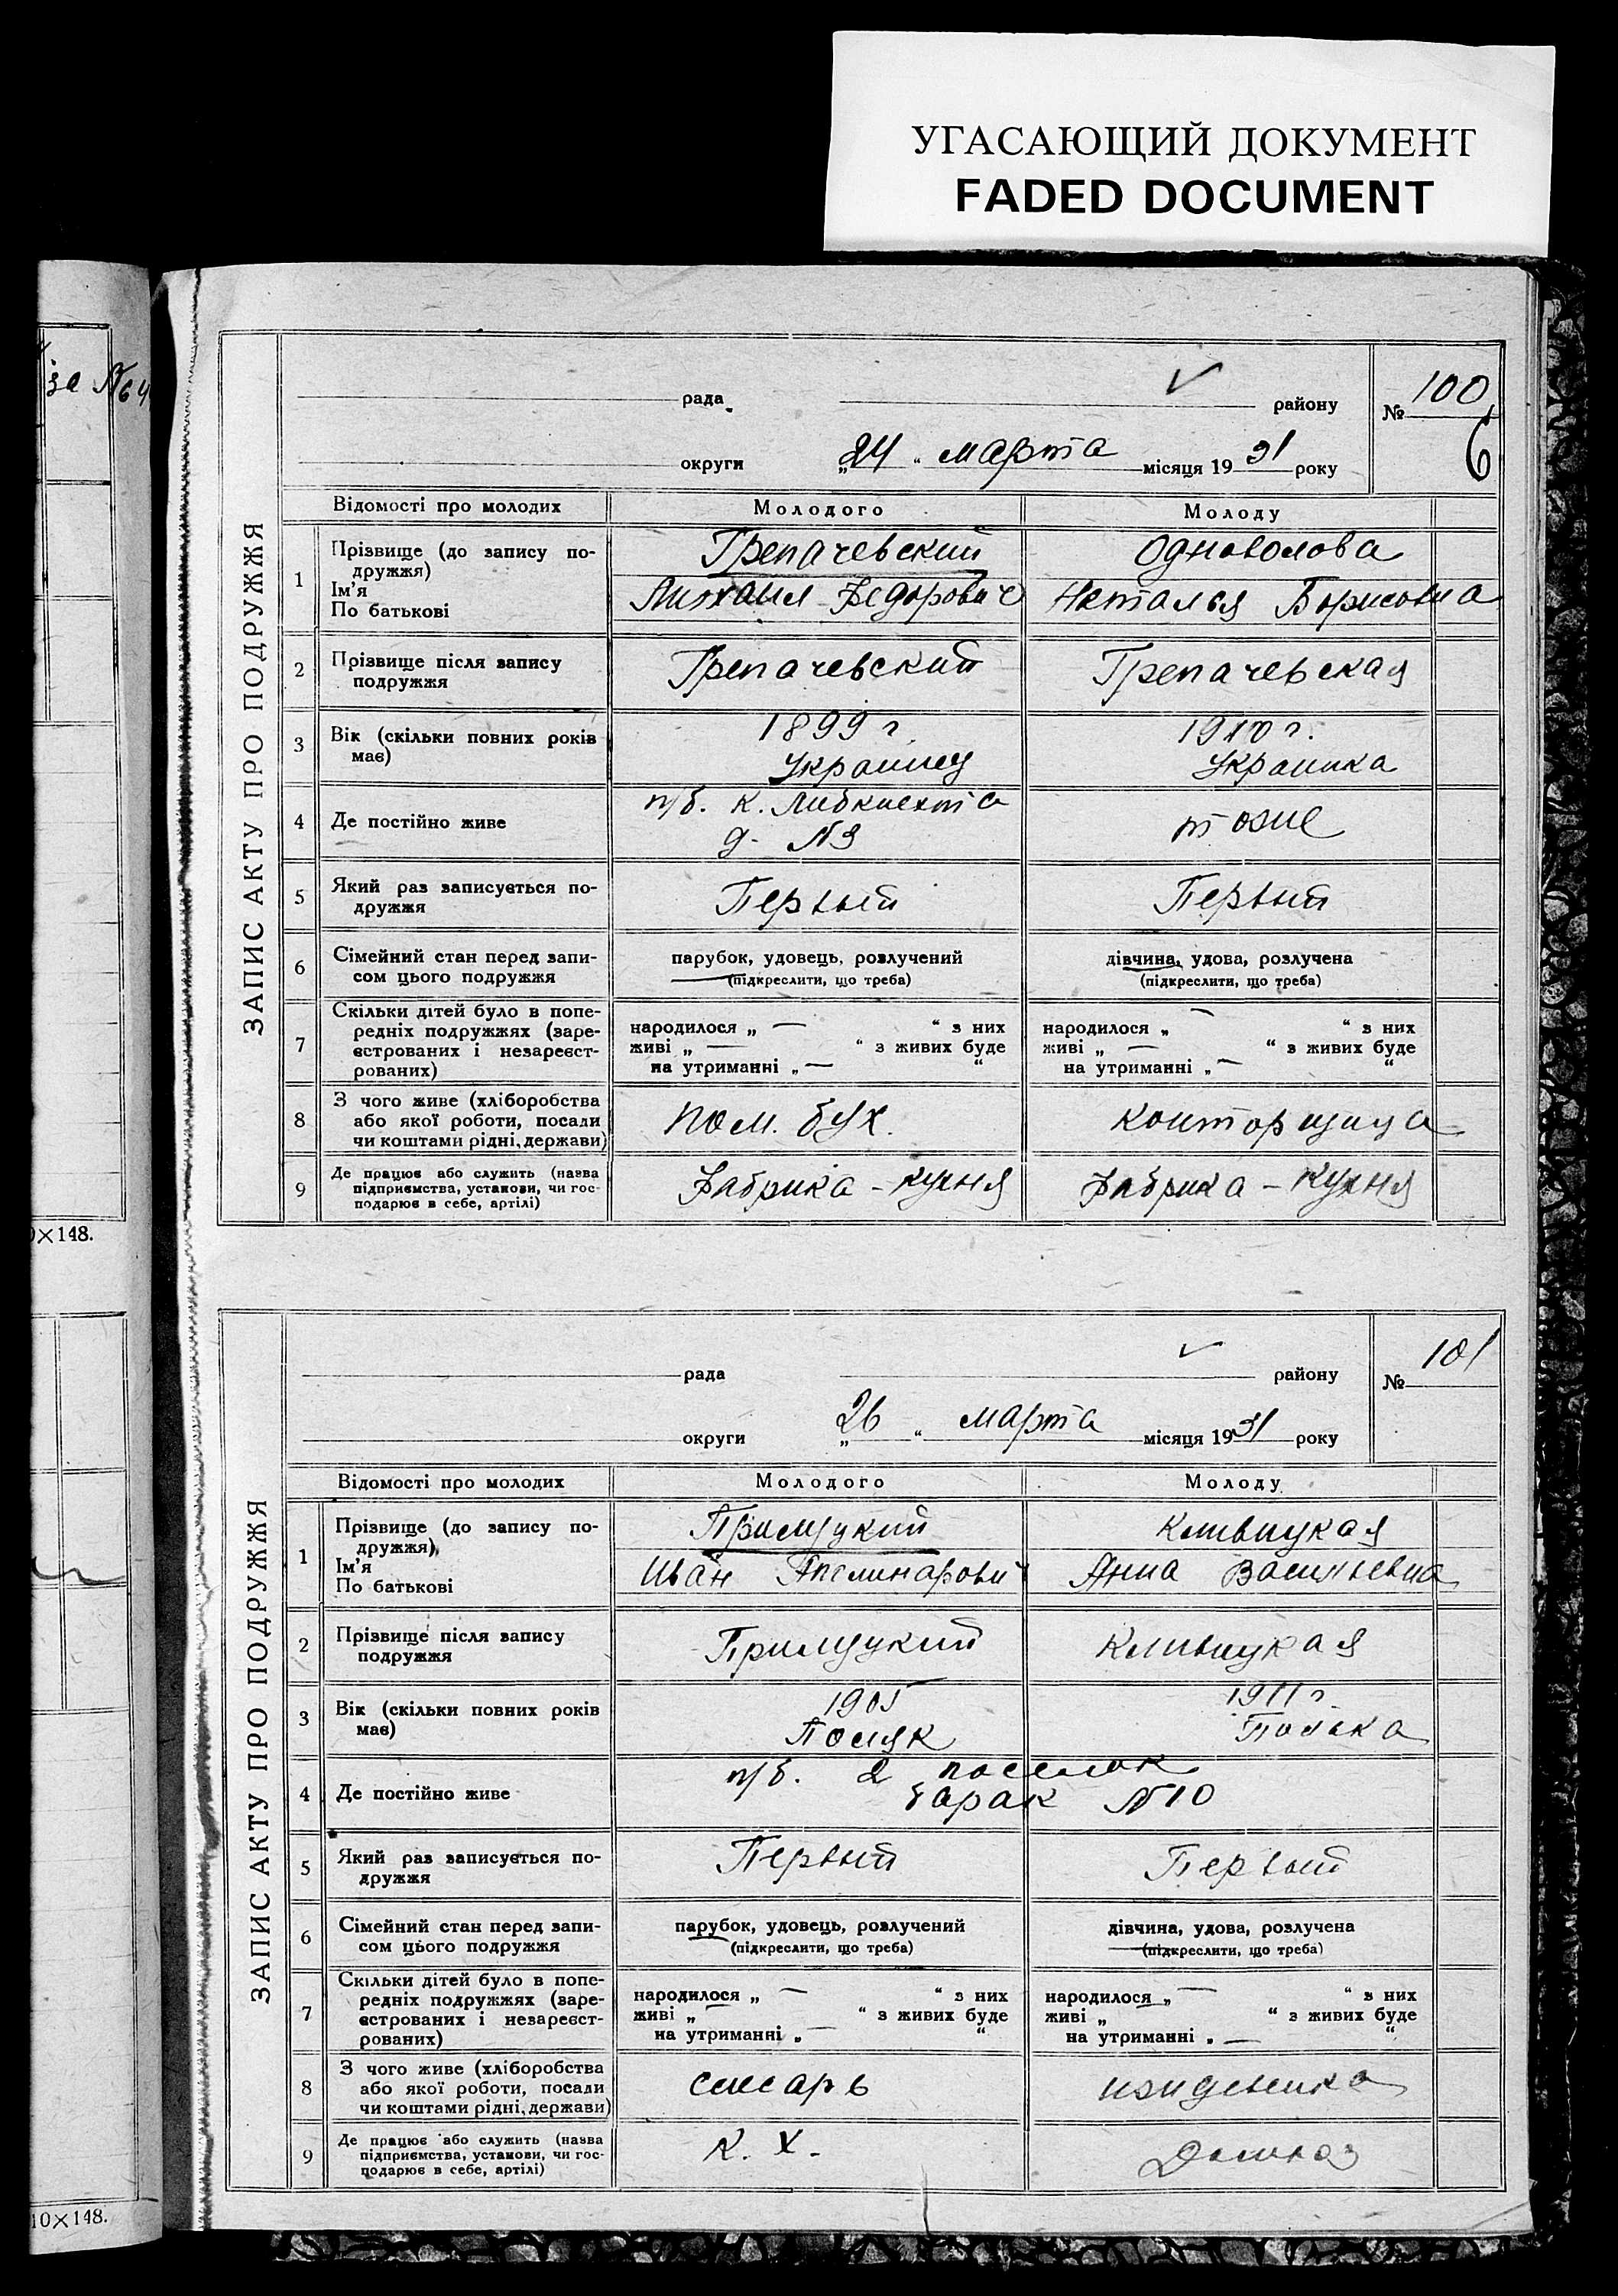 УГАСАЮЩИЙ ДОКУМЕНТ
FADED DOCUMENT
за №
0×148.
10×148.
ЗАПИС АКТУ ПРО ПОДРУЖЖЯ
рада району № 100
6
округи „24“ марта місяця 1931 року
Відомості про молодих Молодого Молоду
1 Прізвище (до запису по-
дружжя)
Ім'я
По батькові
Грепачевский Одноволова
Михаил Федорович Наталья Борисовна
2 Прізвище після запису
подружжя
Грепачевский Грепачевская
3 Вік (скільки повних років
має)
1899 г. 1910 г.
Украинец Украинка
4 Де постійно живе
п/б. К. Либкнехта тоже
д. №9
5 Який раз записується по-
дружжя
Первый Первый
6 Сімейний стан перед запи-
сом цього подружжя
парубок, удовець, розлучений дівчина, удова, розлучена
(підкреслити, що треба) (підкреслити, що треба)
7 Скільки дітей було в попе-
редніх подружжях (заре-
єстрованих і незареєст-
рованих)
народилося „ — “ з них народилося „ — “ з них
живі „ — “ з живих буде живі „ — “ з живих буде
на утриманні „ — “ на утриманні „ — “
8 З чого живе (хліборобства
або якої роботи, посади
чи коштами рідні, держави)
пом. бух. конторщица
9 Де працює або служить (назва
підприємства, установи, чи гос-
подарює в себе, артілі)
Фабрика-кухня Фабрика-кухня
ЗАПИС АКТУ ПРО ПОДРУЖЖЯ
рада району № 101
округи „26“ марта місяця 1931 року
Відомості про молодих Молодого Молоду
1 Прізвище (до запису по-
дружжя)
Ім'я
По батькові
Прилуцкий
Иван Апелинарович Анна Васильевна
2 Прізвище після запису
подружжя
Прилуцкий
3 Вік (скільки повних років
має)
1905 1911 г.
Поляк Полька
4 Де постійно живе
п/б. 2 поселок
барак №10
5 Який раз записується по-
дружжя
Первый Первый
6 Сімейний стан перед запи-
сом цього подружжя
парубок, удовець, розлучений дівчина, удова, розлучена
(підкреслити, що треба) (підкреслити, що треба)
7 Скільки дітей було в попе-
редніх подружжях (заре-
єстрованих і незареєст-
рованих)
народилося „ — “ з них народилося „ — “ з них
живі „ — “ з живих буде живі „ “ з живих буде
на утриманні „ — “ на утриманні „ — “
8 З чого живе (хліборобства
або якої роботи, посади
чи коштами рідні, держави)
слесарь иждевенка
9 Де працює або служить (назва
підприємства, установи, чи гос-
подарює в себе, артілі)
К. Х.